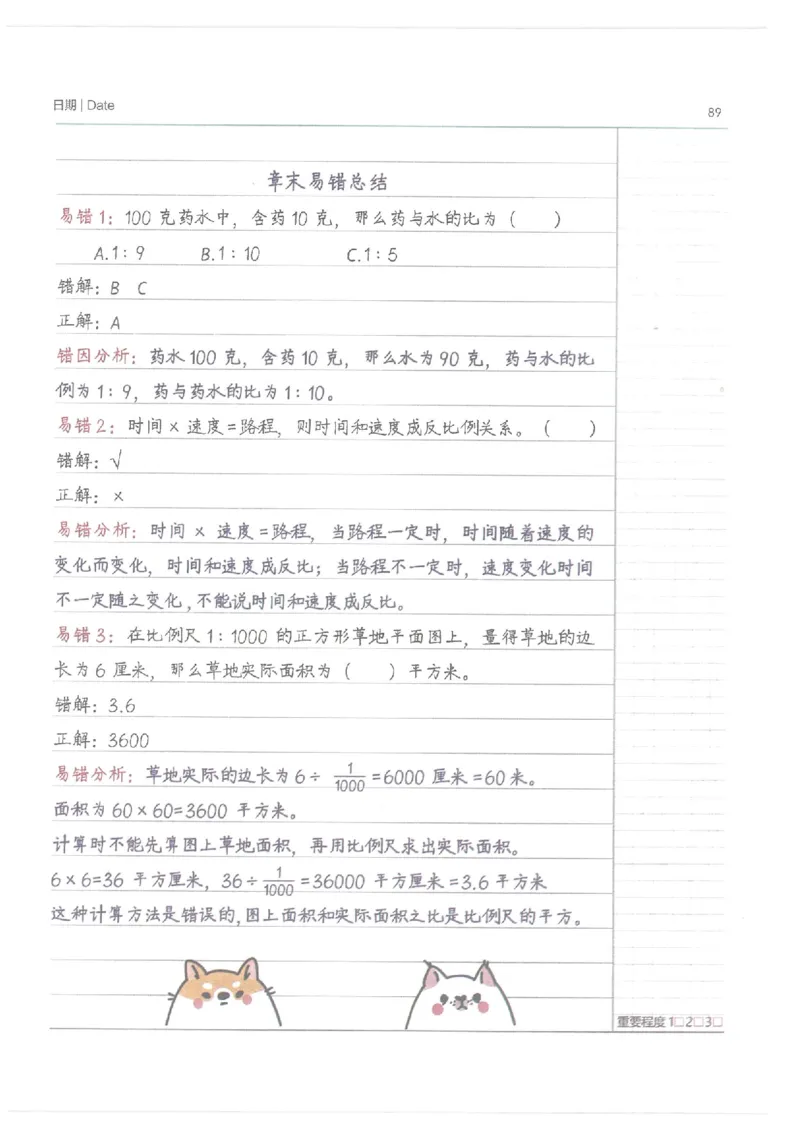 日期 | Date
89
章末易错总结
易错1：100克药水中，含药10克，那么药与水的比为（  ）
A.1：9 B.1：10 C.1：5
错解：B C
正解：A
错因分析：药水100克，含药10克，那么水为90克，药与水的比
例为1：9，药与药水的比为1：10。
易错2：时间×速度=路程，则时间和速度成反比例关系。（  ）
错解：√
正解：×
易错分析：时间×速度=路程，当路程一定时，时间随着速度的
变化而变化，时间和速度成反比；当路程不一定时，速度变化时间
不一定随之变化，不能说时间和速度成反比。
易错3：在比例尺1：1000的正方形草地平面图上，量得草地的边
长为6厘米，那么草地实际面积为（  ）平方米。
错解：3.6
正解：3600
易错分析：草地实际的边长为6÷1/1000=6000厘米=60米。
面积为60×60=3600平方米。
计算时不能先算图上草地面积，再用比例尺求出实际面积。
6×6=36平方厘米，36÷1/1000=36000平方厘米=3.6平方米
这种计算方法是错误的，图上面积和实际面积之比是比例尺的平方。
重要程度 1□2□3□